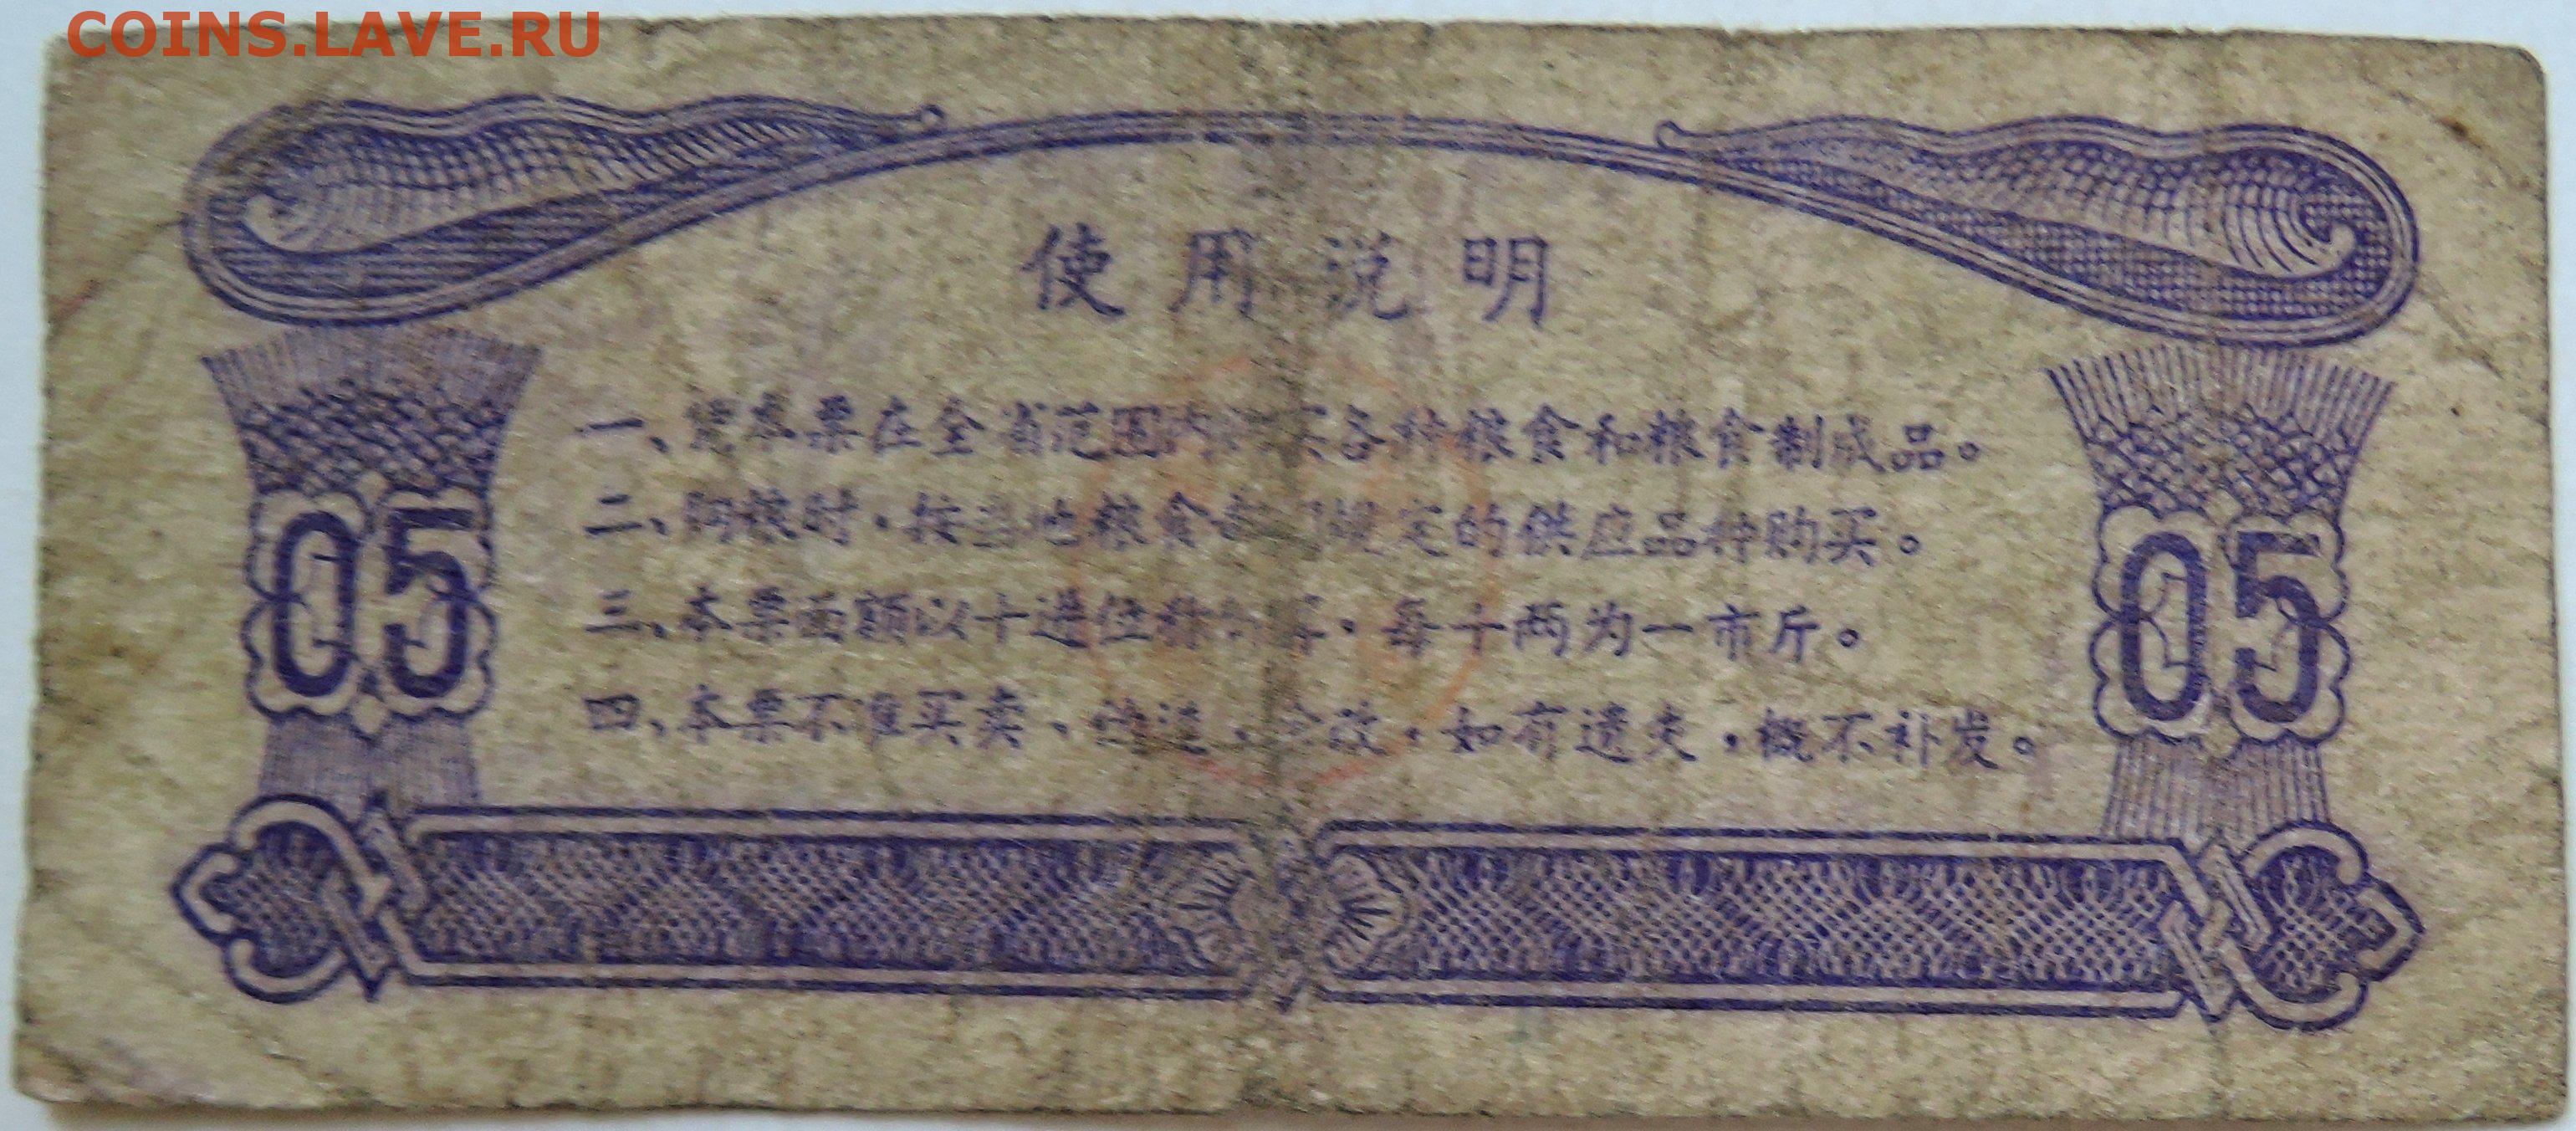 COINS.LAVE.RU
使用说明
一、凭本票在全省范围内购买各种粮食和粮食制成品。
二、购粮时，按当地粮食部门规定的供应品种购买。
05 05
三、本票面额以十进位 每十两为一市斤。
四、本票不准买卖、 改，如有遗失，概不补发。